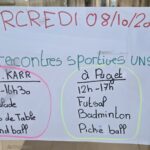 RCREDI 08/10/20
rencontres sportives UNS
. KARR
-16h30
de Table
nd ball
à Puget
12h-17h
Futsal
Badminton
Piché ball